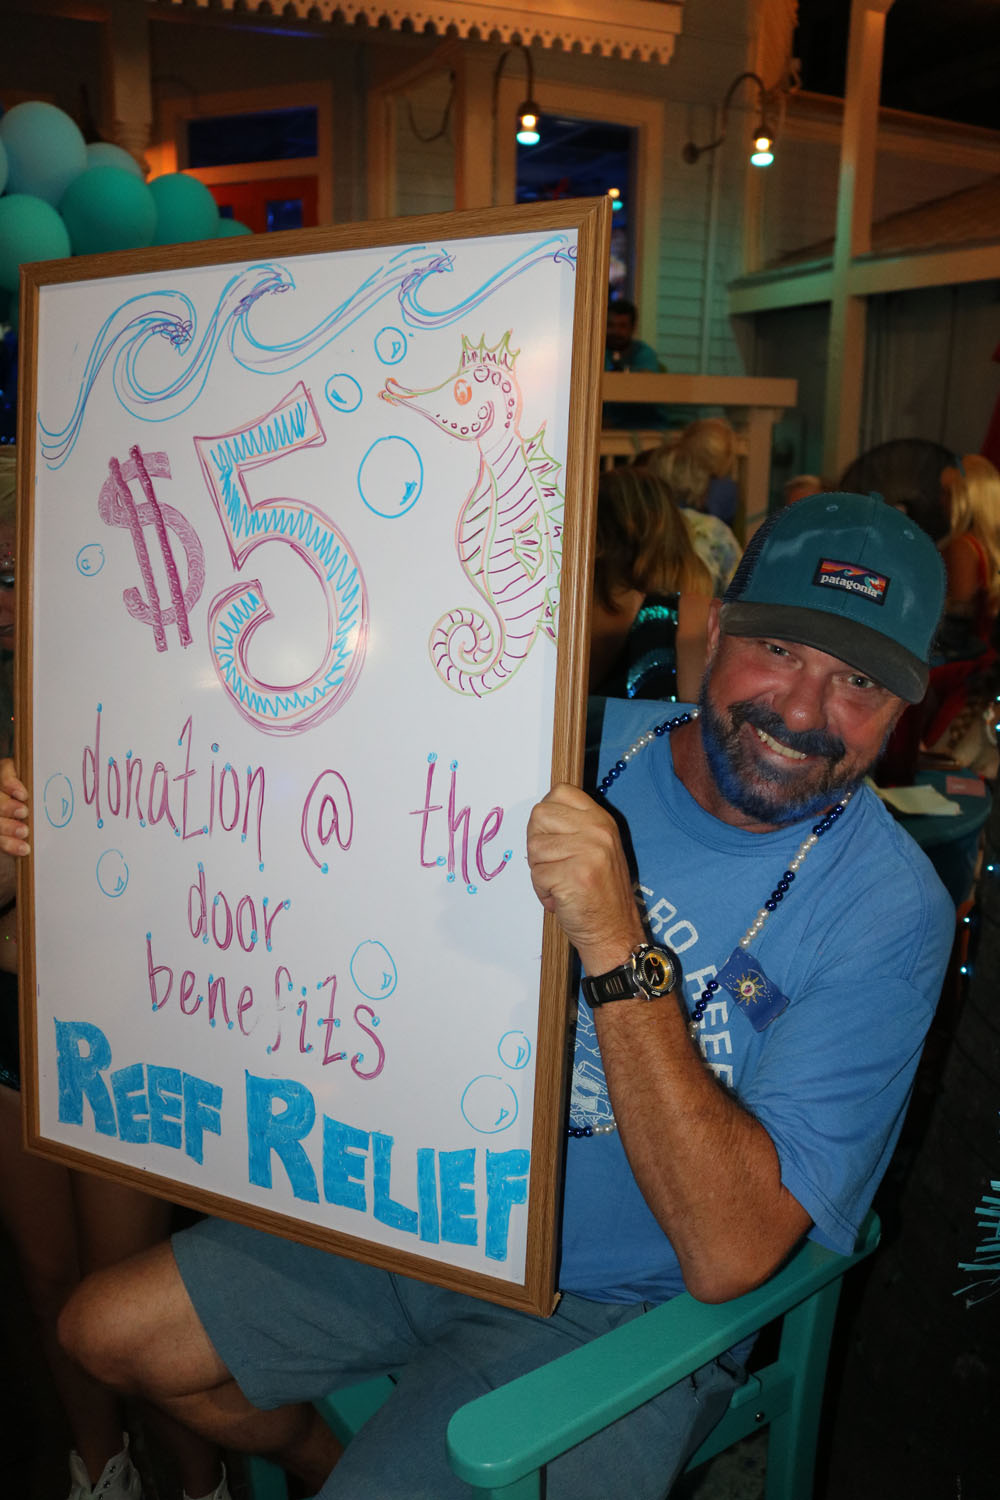 $5
donation @ the
door
benefits
REEF RELIEF
patagonia